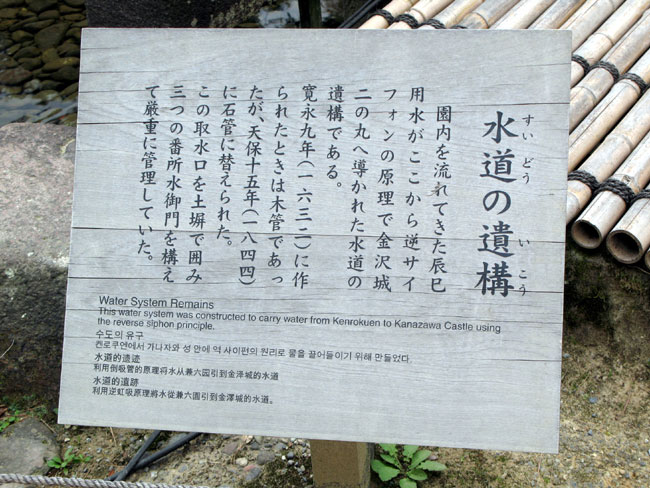 水道の遺構
すいどう いこう
園内を流れてきた辰巳
用水がここから逆サイ
フォンの原理で金沢城
二の丸へ導かれた水道の
遺構である。
寛永九年(一六三二)に作
られたときは木管であっ
たが、天保十五年(一八四四)
に石管に替えられた。
この取水口を土塀で囲み
三つの番所水御門を構え
て厳重に管理していた。
Water System Remains
This water system was constructed to carry water from Kenrokuen to Kanazawa Castle using
the reverse siphon principle.
수도의 유구
켄로쿠엔에서 가나자와 성 안에 역 사이펀의 원리로 물을 끌어들이기 위해 만들었다
水道的遗迹
利用倒吸管的原理将水从兼六园引到金泽城的水道
水道的遺跡
利用逆虹吸原理將水從兼六園引到金澤城的水道。